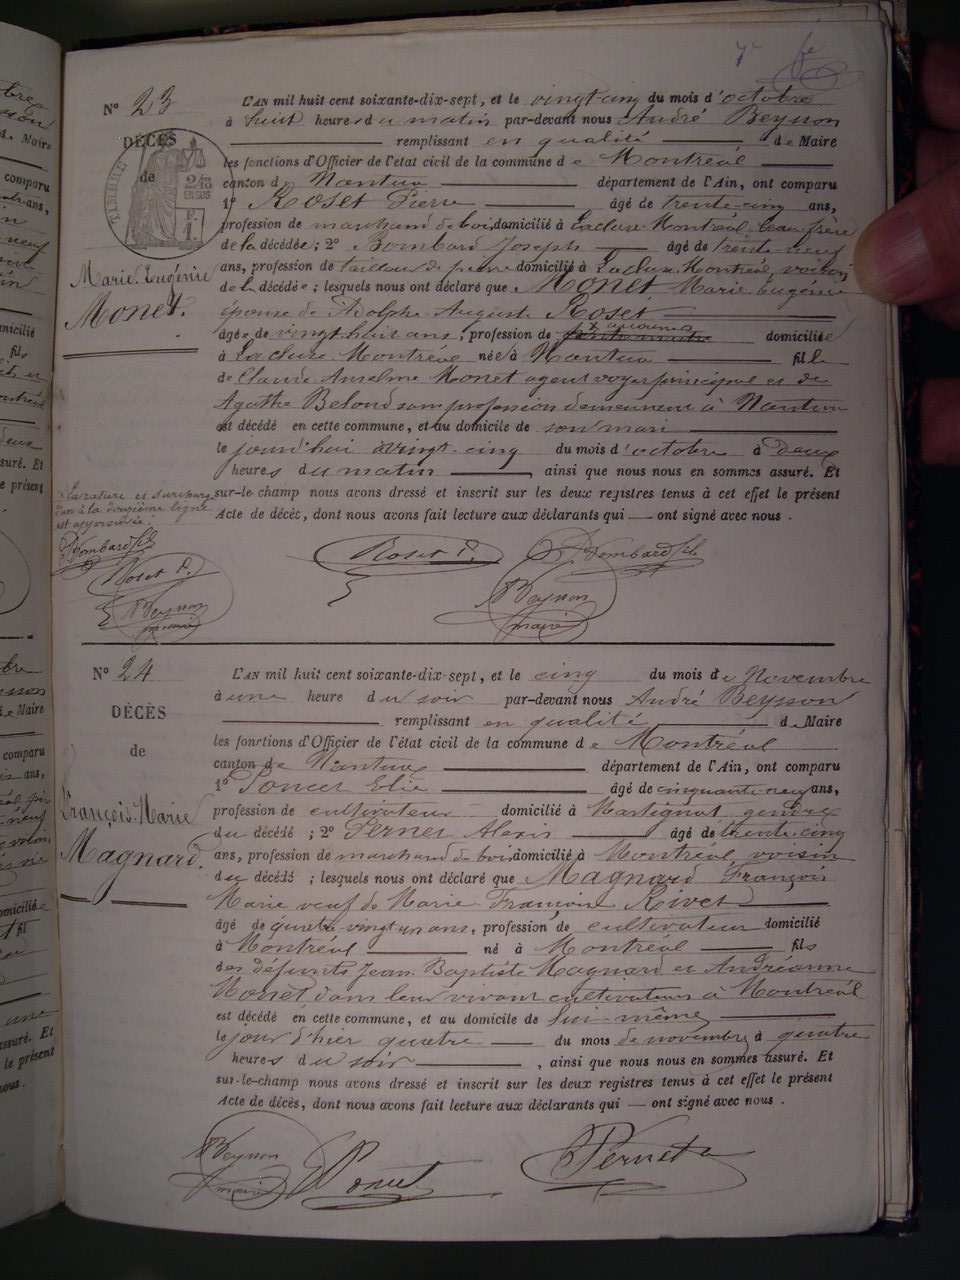 N° 23
DÉCÈS
de
TIMBRE
Marie Eugénie
Monet.
L'AN mil huit cent soixante-dix-sept, et le vingt cinq du mois d'octobre
à huit heures du matin par-devant nous André Beysson
remplissant en qualité de Maire
les fonctions d'Officier de l'etat civil de la commune de Montréal
canton d Nantua département de l'Ain, ont comparu
1° Roset Pierre âgé de trente-cinq ans,
profession de marchand de bois domicilié à Lacluse Montréal beau frère
de la décédée; 2° Bombard Joseph âgé de trente-neuf
ans, profession de tailleur de pierre domicilié à Lacluse Montréal, voisin
de la décédée; lesquels nous ont déclaré que Monet Marie Eugénie
épouse de Adolphe Auguste Roset
âgée de vingt huit ans; profession de domiciliée
à Lacluse Montréal née à Nantua fille
de Claude Anselme Monet agent voyer principal et de
Agathe Belond sans profession demeurant à Nantua
est décédé en cette commune, et au domicile de son mari
le jourd'hui vingt-cinq du mois d'octobre à deux
heures du matin ainsi que nous nous en sommes assuré. Et
sur-le-champ nous avons dressé et inscrit sur les deux registres tenus à cet effet le présent
Acte de décès, dont nous avons fait lecture aux déclarants qui ont signé avec nous.
La rature et surcharge
à la douzième ligne
est approuvée.
Bombard
Roset P.
Beysson
maire
Roset P.
Bombard
Beysson
maire
N° 24
DÉCÈS
de
François-Marie
Magnard.
L'AN mil huit cent soixante-dix-sept, et le cinq du mois de Novembre
à une heure du soir par-devant nous André Beysson
remplissant en qualité de Maire
les fonctions d'Officier de l'état civil de la commune de Montréal
canton de Nantua département de l'Ain, ont comparu
1° Poncet Elie âgé de cinquante neuf ans,
profession de cultivateur domicilié à Martignat, gendre
du décédé; 2° Pernet Alexis âgé de trente-cinq
ans, profession de marchand de bois domicilié à Montréal, voisin
du décédé; lesquels nous ont déclaré que Magnard François
Marie veuf de Marie Françoise Rivet
âgé de quatre vingt un ans, profession de cultivateur domicilié
à Montréal né à Montréal fils
des défunts Jean Baptiste Magnard et Andréanne
Monet dans leur vivant cultivateurs à Montréal
est décédé en cette commune, et au domicile de lui-même
le jour d'hier quatre du mois de novembre à quatre
heures du soir, ainsi que nous nous en sommes assuré. Et
sur-le-champ nous avons dressé et inscrit sur les deux registres tenus à cet effet le présent
Acte de décès, dont nous avons fait lecture aux déclarants qui ont signé avec nous.
Beysson
maire
Poncet
Pernet